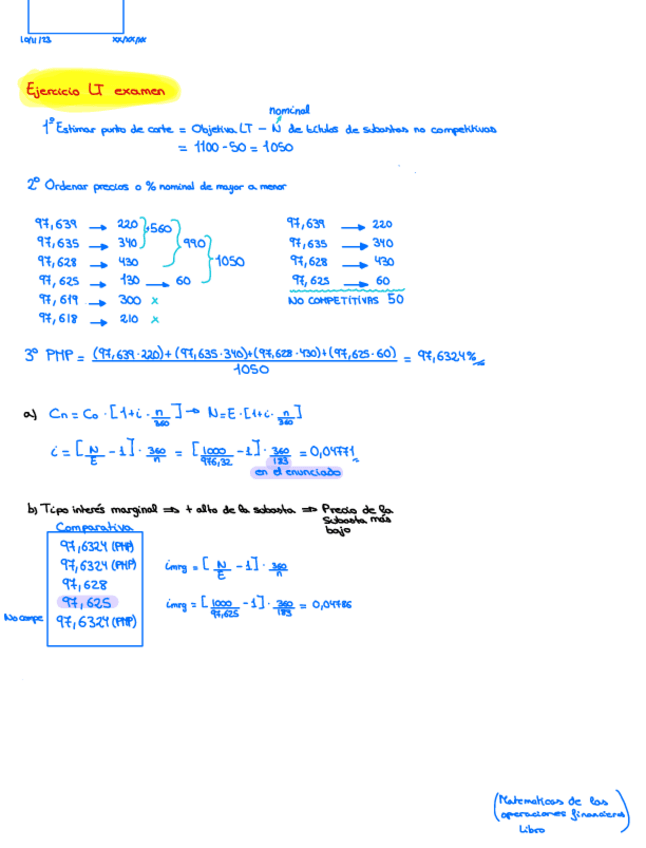 10/11/23 xx/xx/xx
Ejercicio LT examen
nominal
1º Estimar punto de corte = Objetivo LT - N de títulos de subastas no competitivas
= 1100 - 50 = 1050
2º Ordenar precios o % nominal de mayor a menor
97,639 → 220 } 560
97,635 → 340 } 990
97,628 → 430 } 1050
97,625 → 130 → 60
97,619 → 300 x
97,618 → 210 x
97,639 → 220
97,635 → 340
97,628 → 430
97,625 → 60
NO COMPETITIVAS 50
3º PMP = (97,639·220)+(97,635·340)+(97,628·430)+(97,625·60) / 1050 = 97,6324%
a) Cn = Co · [1+i · n/360] → N = E · [1+i · n/360]
i = [N/E - 1] · 360/n = [1000/976,32 - 1] · 360/183 = 0,04771
en el enunciado
b) Tipo interés marginal ⇒ + alto de la subasta ⇒ Precio de la
subasta más
bajo
Comparativa
97,6324 (PMP)
97,6324 (PMP)
97,628
97,625
No compe 97,6324 (PMP)
imrg = [N/E - 1] · 360/n
imrg = [1000/97,625 - 1] · 360/183 = 0,04786
(Matematicas de las
operaciones financieras)
Libro